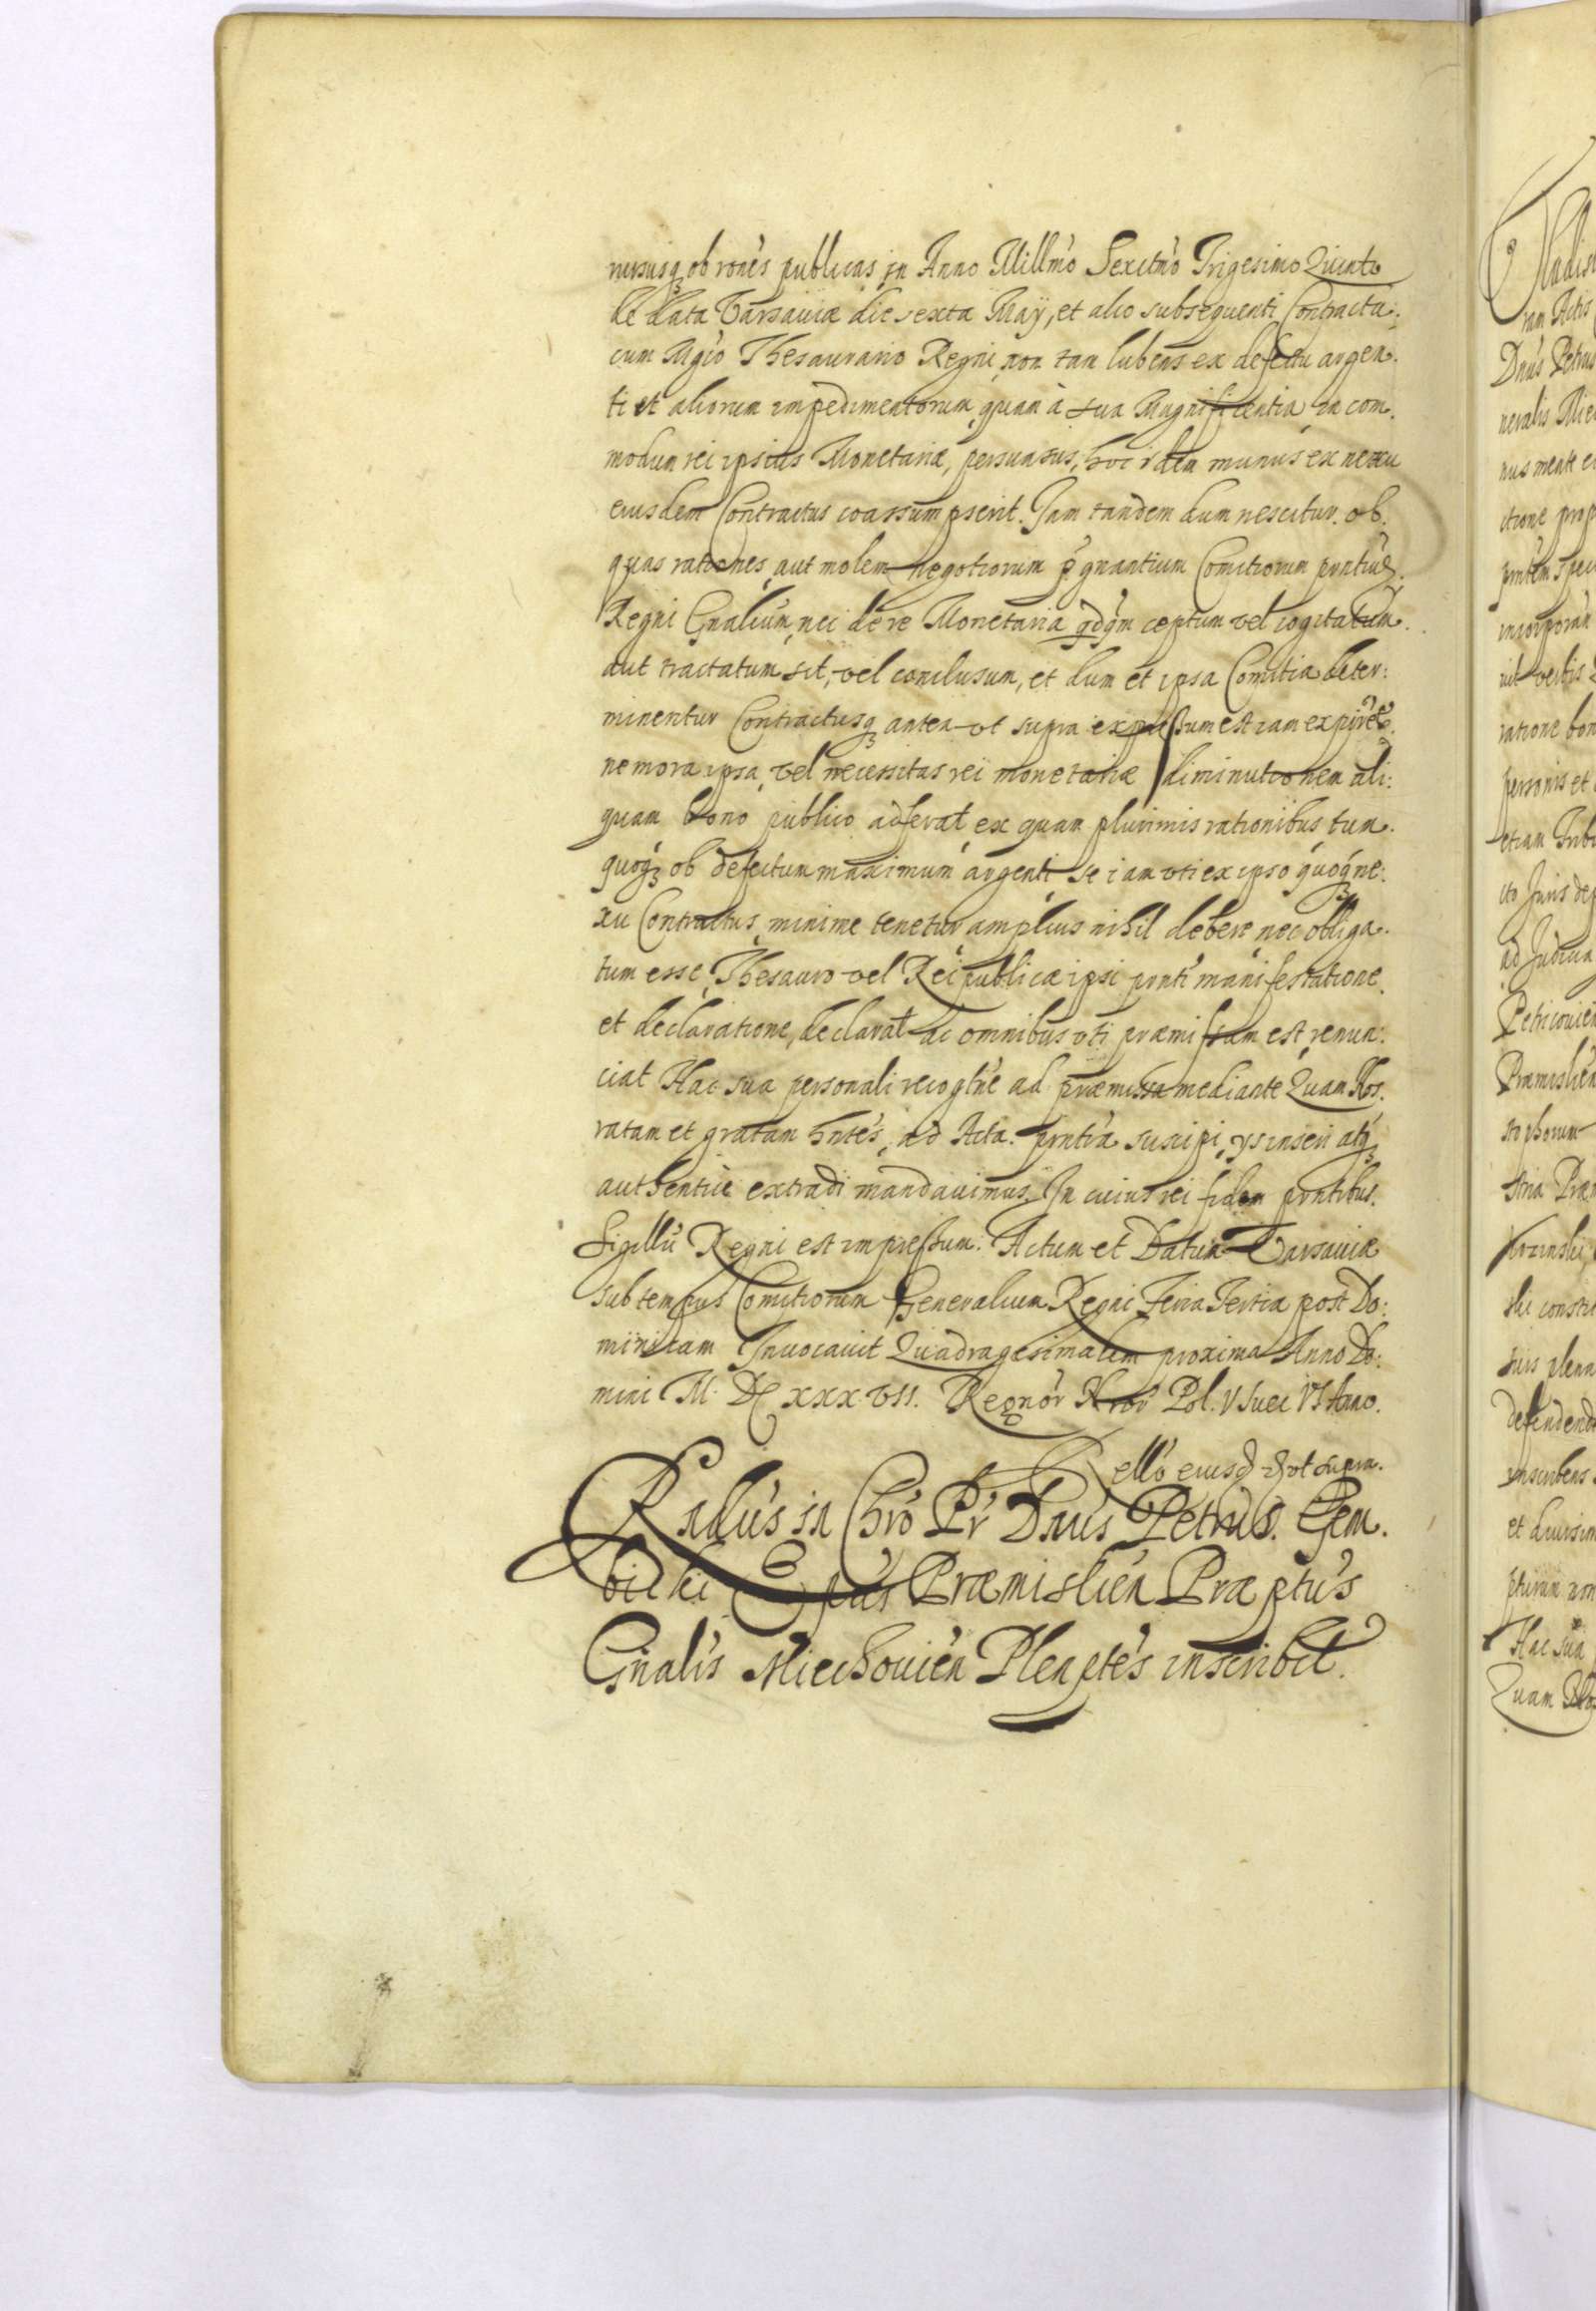 nersusq3 ob rões publicas in Anno Millmo Sexctmo Trigesimo Quinto
de data Varsauiæ die sexta Maij, et alio subsequenti Contractu
cum Mgco Thesaurario Regni non tam lubens ex defectu argen.
ti et aliorum impedimentorum, quam à sua Magnificentia, in com.
modum rei ipsius Monetariæ, persuasus, hoc idem munus ex nexu
eiusdem Contractus coassumpserit. Jam tandem dum nescitur ob
quas rationes, aut molem negotiorum Comitiorum pntium
Regni Gnalium, nec de re Monetaria qdqm cæptum vel cogitatum
aut tractatum sit, vel conclusum, et dum et ipsa Comitia deter:
minentur Contractusq3 antea vt supra expressum est iam expiret
ne mora ipsa, vel necessitas rei monetariæ diminutionem ali:
quam bono publico adferat, ex quam plurimis rationibus tum
quoq3 ob defectum maximum argenti, se iam vti ex ipso quoq3 ne:
xu Contractus, minime tenetur amplius nihil debere nec obliga.
tum esse, Thesauro vel Reipublicæ ipsi pnti manifestatione
et declaratione, declarat ac omnibus vti præmissum est, renun:
ciat Hac sua personali recogtne ad præmissa mediante Quam Nos
ratam et gratam hntes, ad Acta pntia suscipi, ijs inseri atq3
authentice extradi mandauimus. In cuius rei fidem pntibus
Sigillu Regni est impressum. Actum et Datum Varsauiæ
sub tempus Comitiorum Generalium Regni Feria Tertia post Do:
minicam Inuocauit Quadragesimalem proxima Anno Do:
mini M. DC XXX VII. Regnor Nror Pol. V Suec VI Anno.
ello eiusd qd vt supra.
Rndus in Chro Pr Dnus Petrus Gem.
bicki Epus Præmislien Præptus
Gnalis Miechouien Plenptes inscribit.